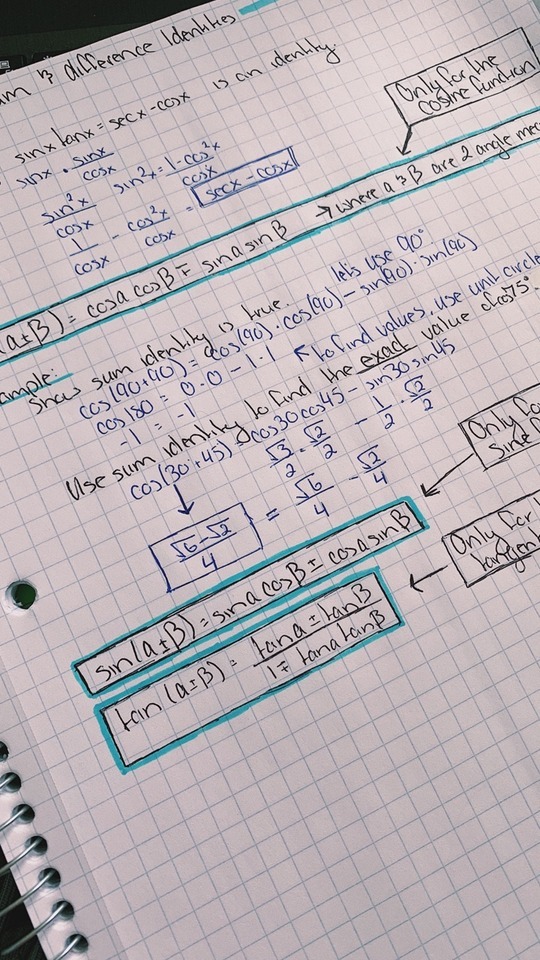 & difference Identities
sinx tanx = secx - cosx is an identity.
sinx · sinx/cosx
sin²x/cosx sin²x = 1-cos²x/cosx
1/cosx - cos²x/cosx = secx - cosx
Only for the cosine function
(a±β) = cosa cosβ ∓ sina sinβ → where a & β are 2 angle
show sum identity is true. let's use 90°
cos(90+90) = cos(90)·cos(90) - sin(90)·sin(90)
cos180 = 0·0 - 1·1 ← to find values, use unit circle
-1 = -1
Use sum identity to find the exact value of cos75°.
cos(30+45) = cos30cos45 - sin30sin45
√3/2 · √2/2 - 1/2 · √2/2
√6-√2/4 = √6/4 - √2/4
Only for
sin(a±β) = sina cosβ ± cosa sinβ
Only for
tan(a±β) = tana ± tanβ/1∓tana tanβ